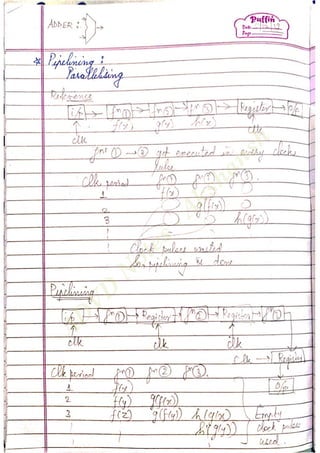 ADDER :
Puffin
Date
Page
* Pipelining :
Parallelising
Reference
i/p → fn ① → fn ② → fn ③ → Register → o/p
f(x) g(y) h(x)
clk clk
fn ① → ③ get executed in every clock
pulse
Clk period fn ① fn ② fn ③.
1 f(x)
2 g(f(x))
3 h(g(x))
Clock pulses wasted
So pipelining is done
Pipelining
i/p → fn ① → Register → fn ② → Register → fn ③
clk clk clk
Clk → Register
Clk period fn ① fn ② fn ③. O/p
1 f(x)
2 f(y) g(f(x))
3 f(z) g(f(y)) h(g(x)) Empty
h(g(y)) clock pulses
used.